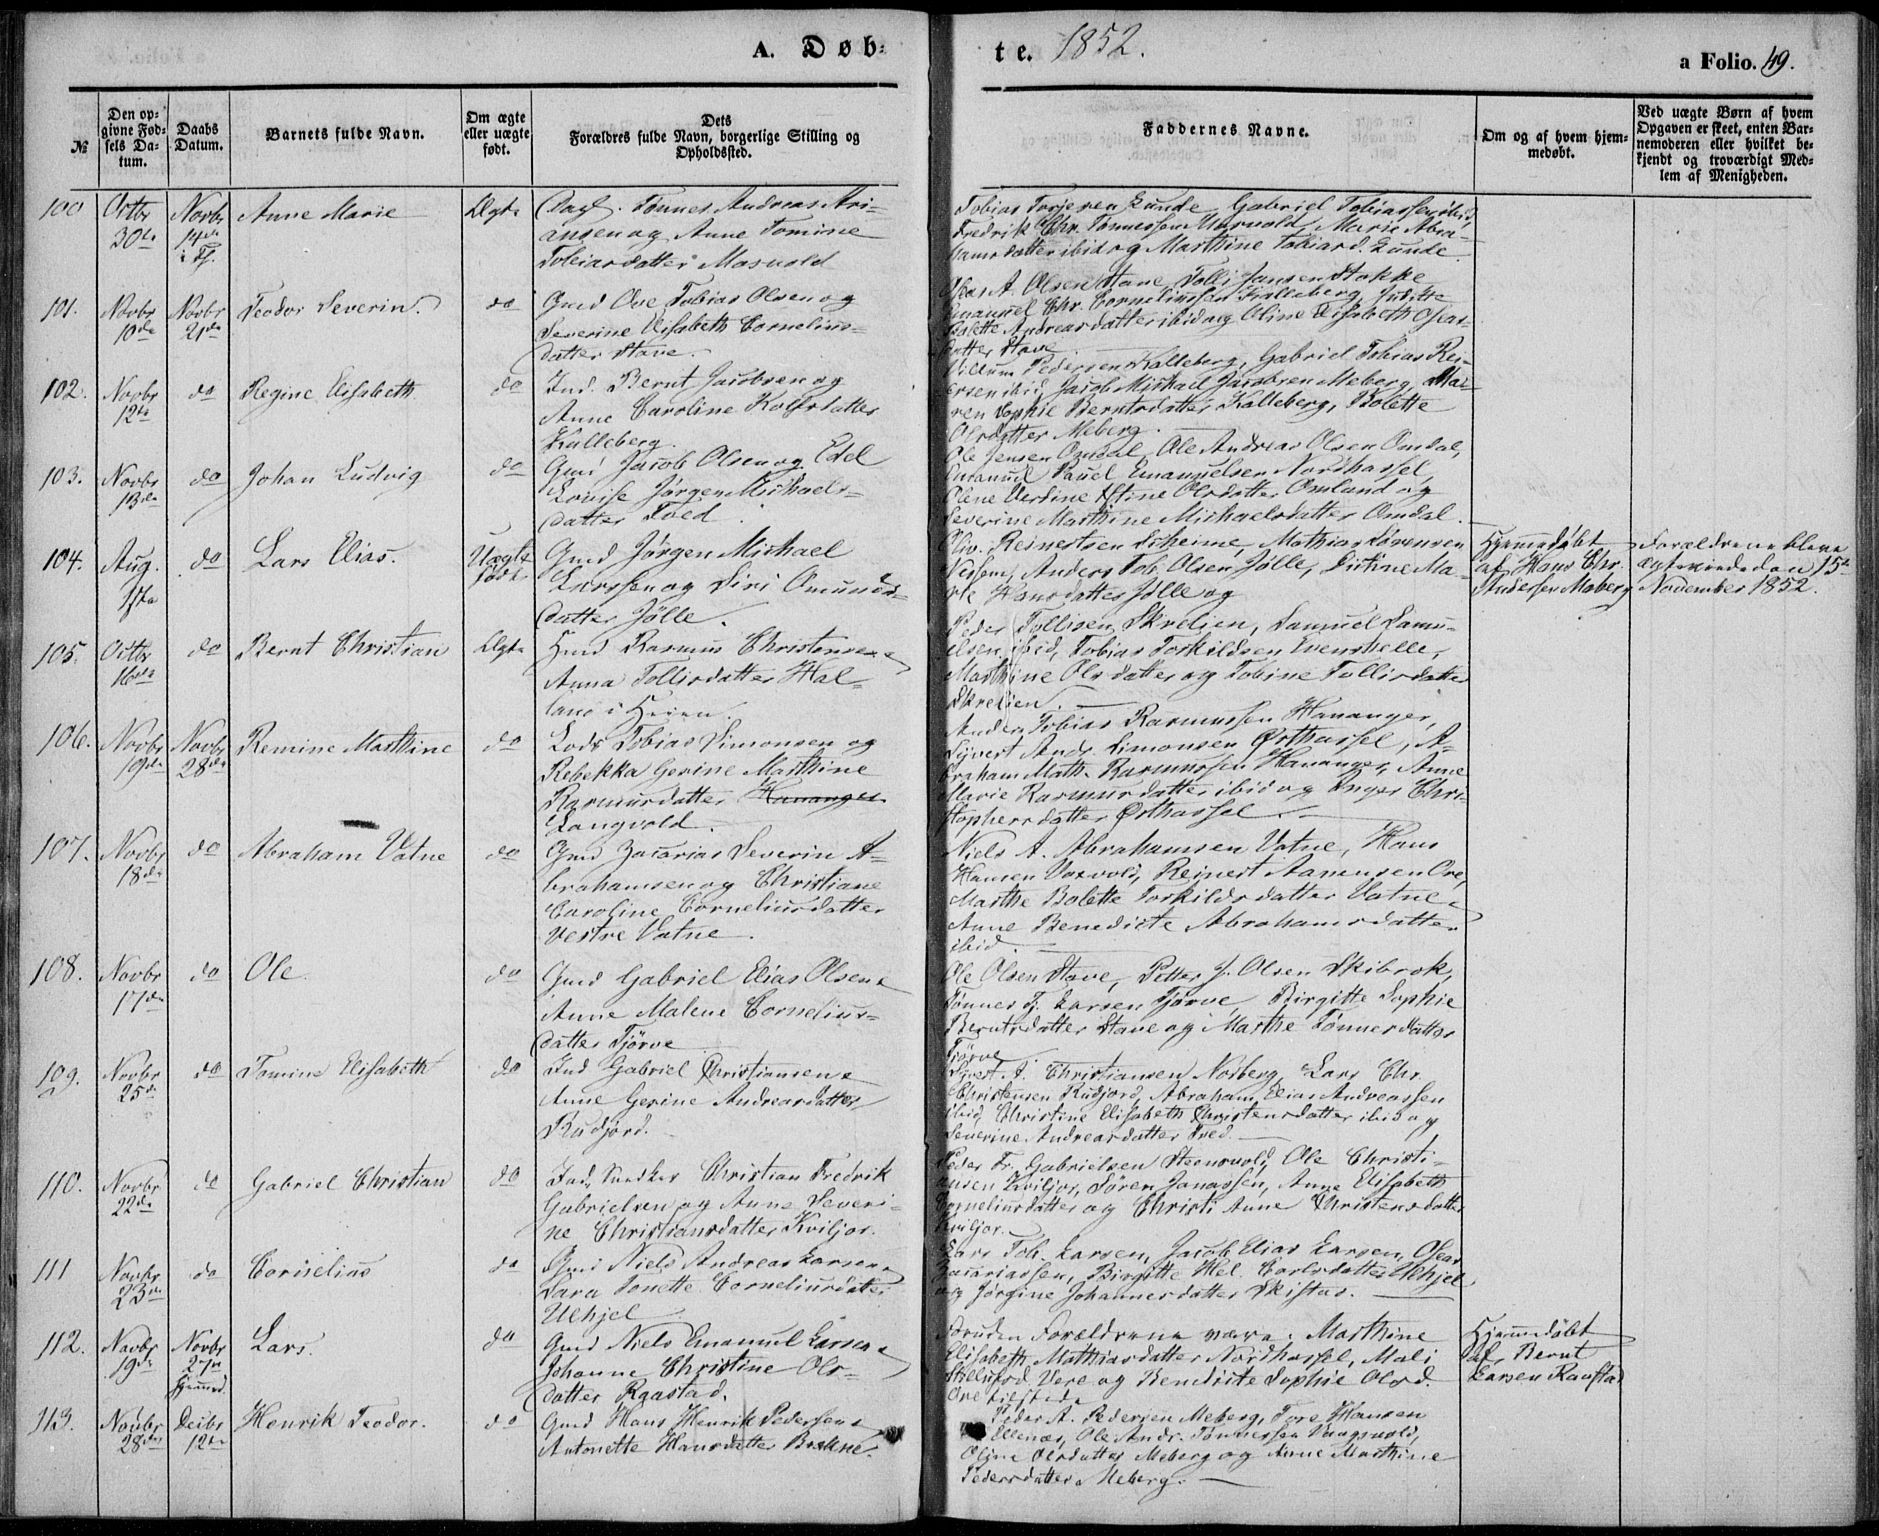 A. Døb-
te. 1852.
a Folio. 49.
№
Den op-
givne Fød-
sels Da-
tum.
Daabs
Datum.
Barnets fulde Navn.
Om ægte
eller uægte
født.
Dets
Forældres fulde Navn, borgerlige Stilling og
Opholdssted.
Faddernes Navne.
Om og af hvem hjem-
medøbt.
Ved uægte Børn af hvem
Opgaven er skeet, enten Bar-
nemoderen eller hvilket be-
kjendt og troværdigt Med-
lem af Menigheden.
100
Octbr
30te
Novbr
14de
Anne Marie
Ægte
Tønnes Andreas Ari-
ansen og Anne Tomine
Tobiasdatter Mosvold
Tobias Lunde Gabriel Tobiassen ibid,
Fredrik Chr. Tønnessen Mosvold, Marie Abra-
hamsdatter ibid og Marthine Tobiasd. Lunde.
101.
Novbr
10de
Novbr
21de
Teodor Severin.
do
Gmd Ove Tobias Olsen og
Severine Elisabeth Cornelius-
datter Stave.
A. Olsen Stave, Tollis Jansen Stokke
Emanuel Chr. Corneliussen Kalleberg, Juditte
Bolette Andreasdatter ibid og Oline Elisabeth Oseas-
datter Stave
102.
Novbr
12te
do
Regine Elisabeth
do
Ind. Bernt Jacobsen og
Anne Caroline Rolfsdatter
Kalleberg.
Villum Pedersen Kalleberg, Gabriel Tobias
ibid, Jacob Michael Jacobsen Meberg, Ma-
ren Sophie Berntsdatter Kalleberg, Bolette
Olsdatter Meberg.
103.
Novbr
13de
do
Johan Ludvig
do
Gmd Jacob Olsen og Edel
Lovise Jørgen Michaels-
datter Tved.
Ole Jensen Omdal, Ole Andreas Olsen Omdal,
Emanuel Pauel Emanuelsen Nordhassel,
Olene Stine Olsdatter Omlund og
Severine Marthine Michaelsdatter Omdal.
104.
Aug.
1ste
do
Lars Elias.
Uægte
født
Gmd Jørgen Michael
Larssen og Siri Omunds-
datter Jølle.
Oliv. Reinertsen Scheime, Mathias Sørensen
Vessem, Anders Tob. Olsen Jølle, Sistine Ma-
rie Hansdatter Jølle og
Hjemmedøbt
af Hans Chr.
Andersen Meberg
Forældrene bleve
ægteviede den 15de
November 1852.
105.
Octbr
16de
do
Bernt Christian
Ægte
Hmd Rasmus Christensen &
Anna Tollisdatter Hal-
land i Heien.
Peder Tollisen Skrelien, Samuel Samu-
elsen ibid, Tobias Torkildsen Evenshelle,
Marthine Olsdatter og Tobine Tollisdatter
Skrelien.
106.
Novbr
19de
Novbr
28de
Remine Marthine
do
Lods Tobias Simonsen og
Rebekka Gesine Marthine
Rasmusdatter Hananger
Langvold.
Anders Tobias Rasmussen Hananger,
Sijvert Ands. Simonsen Østhassel, A-
braham Math. Rasmussen Hananger, Anne
Marie Rasmusdatter ibid og Inger Chri-
stophersdatter Østhassel.
107.
Novbr
18de
do
Abraham Vatne
do
Gmd Zacarias Severin A-
brahamsen og Christiane
Caroline Corneliusdatter
Vestre Vatne.
Niels A. Abrahamsen Vatne, Hans
Hansen Varvold, Reinert Aanensen Ore,
Marthe Bolette Torkildsdatter Vatne &
Anne Benedicte Abrahamsdatter
ibid
108.
Novbr
17de
do
Ole
do
Gmd Gabriel Elias Olsen &
Anne Malene Cornelius-
datter Tjørve
Ole Olsen Stave, Petter J. Olsen Skibrok,
Tønnes Tj. Larsen Tjørve, Birgitte Sophie
Berntsdatter Stave og Marthe Tønnesdatter
Tjørve
109.
Novbr
25de
do
Tomine Elisabeth
do
Ind Gabriel Christiansen &
Anne Gesine Andreasdatter
Rudjord.
Sijvert A. Christiansen Nesberg, Lars Chr.
Christensen Rudjord, Abraham Elias Andreassen
ibid, Christine Elisabeth Christensdatter ibid og
Severine Andreasdatter Tved.
110.
Novbr
22de
do
Gabriel Christian
do
Ind, Snedker Christian Fredrik
Gabrielsen og Anne Severi-
ne Christiansdatter Kviljor.
Peder Fr. Gabrielsen Steensvold, Ole Christi-
ansen Kviljor, Søren Jonassen, Anne Elisabeth
Corneliusdatter og Christi Anne Christensdatter
Kviljor.
111
Novbr
23de
do
Cornelius
do
Gmd Niels Andreas Larsen &
Sara Tonette Corneliusdatter
Ulhjel
Lars Tob. Larsen, Jacob Elias Larsen, Oseas
Zacariassen, Birgitte Hel. Carlsdatter Ulhjel
og Jørgine Johannesdatter Skistad.
112.
Novbr
19de
Novbr
27de
Hjemmed.
Lars.
do
Gmd Niels Emanuel Larsen &
Johanne Christine Ols-
datter Raastad.
Foruden Forældrene være: Marthine
Elisabeth Mathiasdatter Nordhassel, Mali
Vere og Bendicte Sophie Olsd.
Ore tilstede
Hjemmedøbt
af Bernt
Larsen Raastad
113.
Novbr
28de
Decbr
12te
Henrik Teodor.
do
Gmd Hans Henrik Pedersen &
Antonette Hansdatter Brekne.
Peder A. Pedersen Meberg, Tore Hansen
Ellenæs, Ole Andr. Tønnessen Vaagsvold,
Oline Olsdatter Meberg og Anne Marthine
Pedersdatter Meberg.